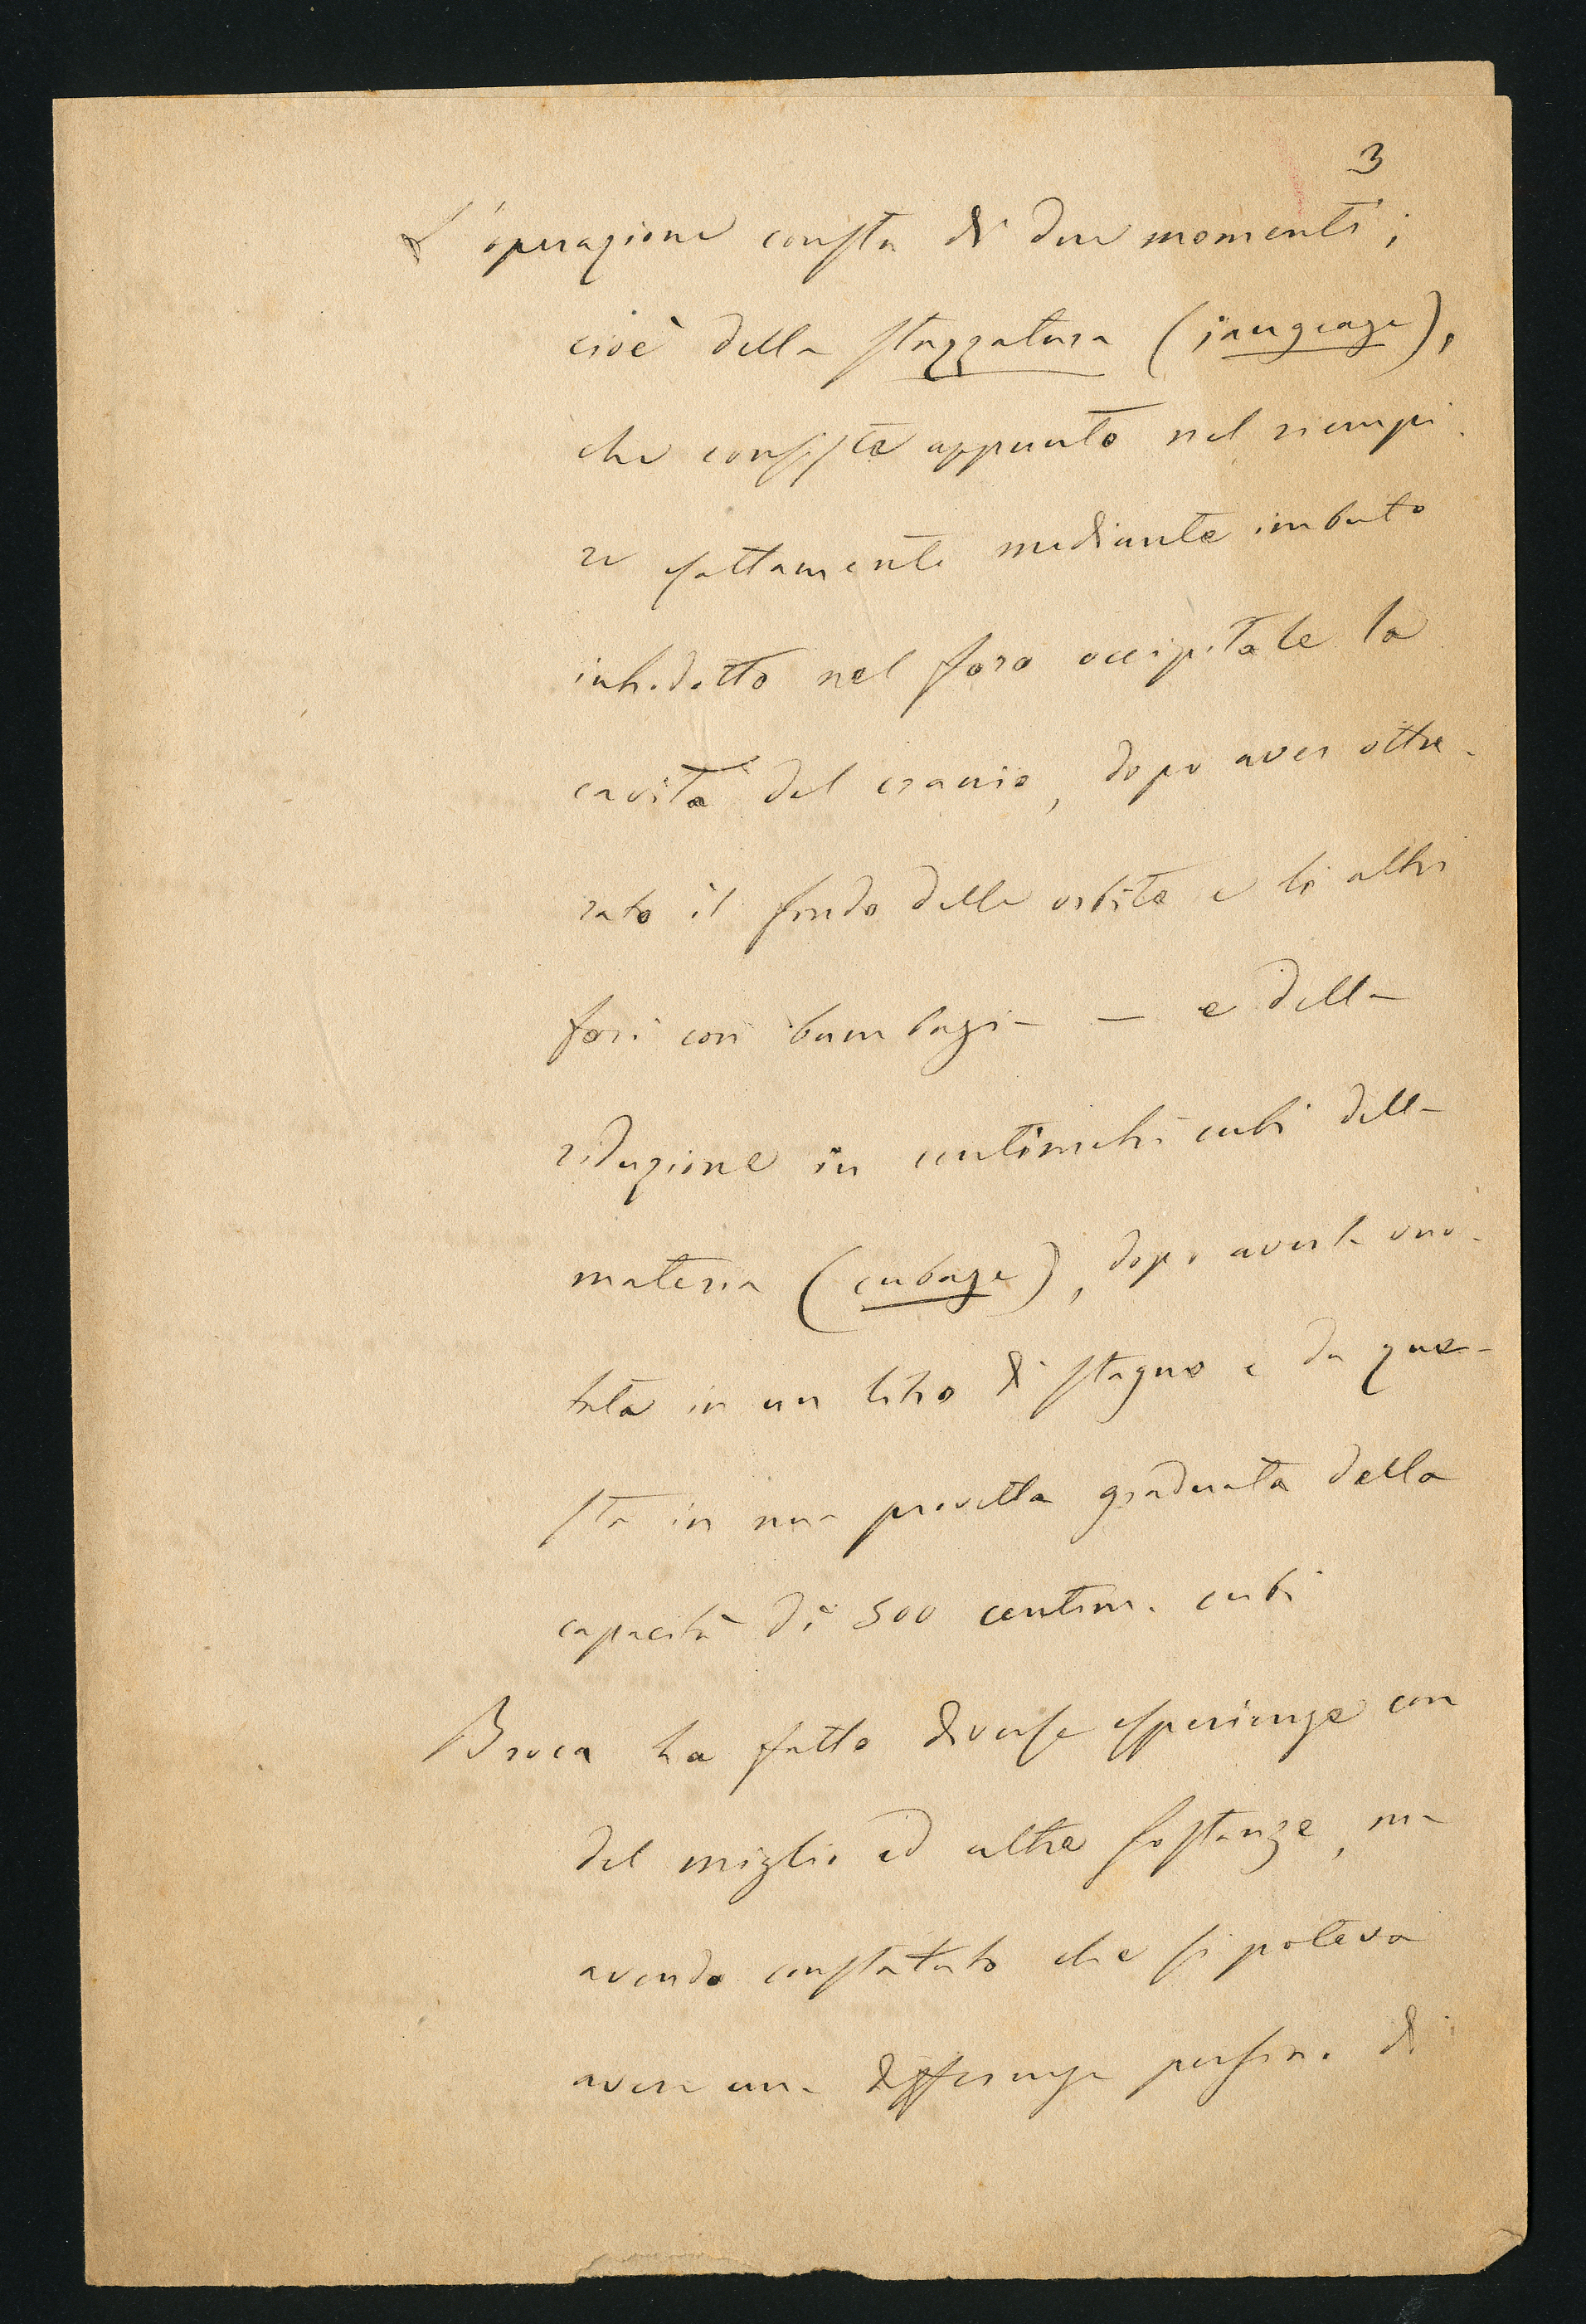 3
L'operazione consta di due momenti;
cioè della stazzatura (jaugeage),
che consiste appunto nel riempi-
re esattamente mediante imbuto
introdotto nel foro occipitale la
cavità del cranio, dopo aver ottu-
rato il fondo delle orbite e li altri
fori con bambagia — e della
riduzione in centimetri cubi della
materia (cubage), dopo averla vuo-
tata in un litro di stagno e da que-
sta in una provetta graduata della
capacità di 500 centim. cubi
Broca ha fatto diverse esperienze con
del miglio ed altre sostanze, ma
avendo constatato che si poteva
avere una differenza persino di